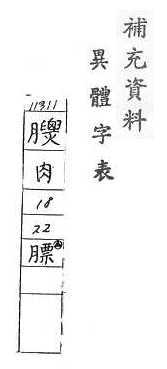 補充資料
異體字表
11311
𦢩
肉
18
22
膘